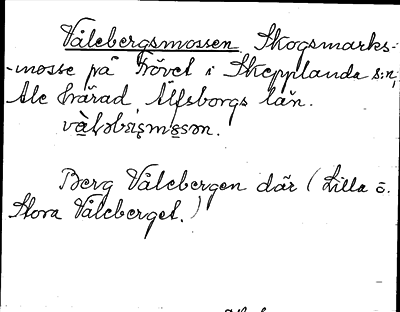 Vålebergsmossen. Skogsmarks-
-mosse på Prövet i Skepplanda s:n,
Ale härad, Älfsborgs län.
Berg Vålebergen där (Lilla o.
Stora Våleberget.)